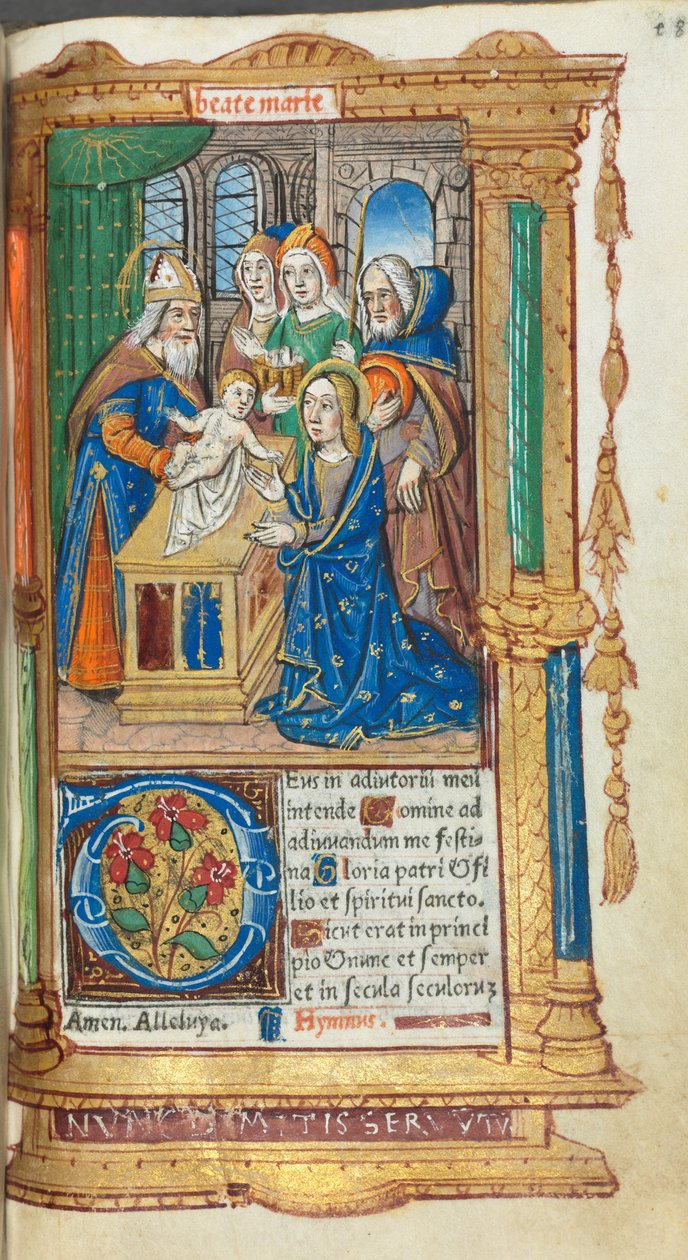 e 8
beate marie
Eus in adiutoriũ meũ
intende Domine ad
adiuuandum me festi-
na Gloria patri & fi
lio et spiritui sancto.
Sicut erat in princi
pio & nunc et semper
et in secula seculoruꝫ
Amen. Alleluya. Hymnus.
NVNC DIMITIS SERVVTV